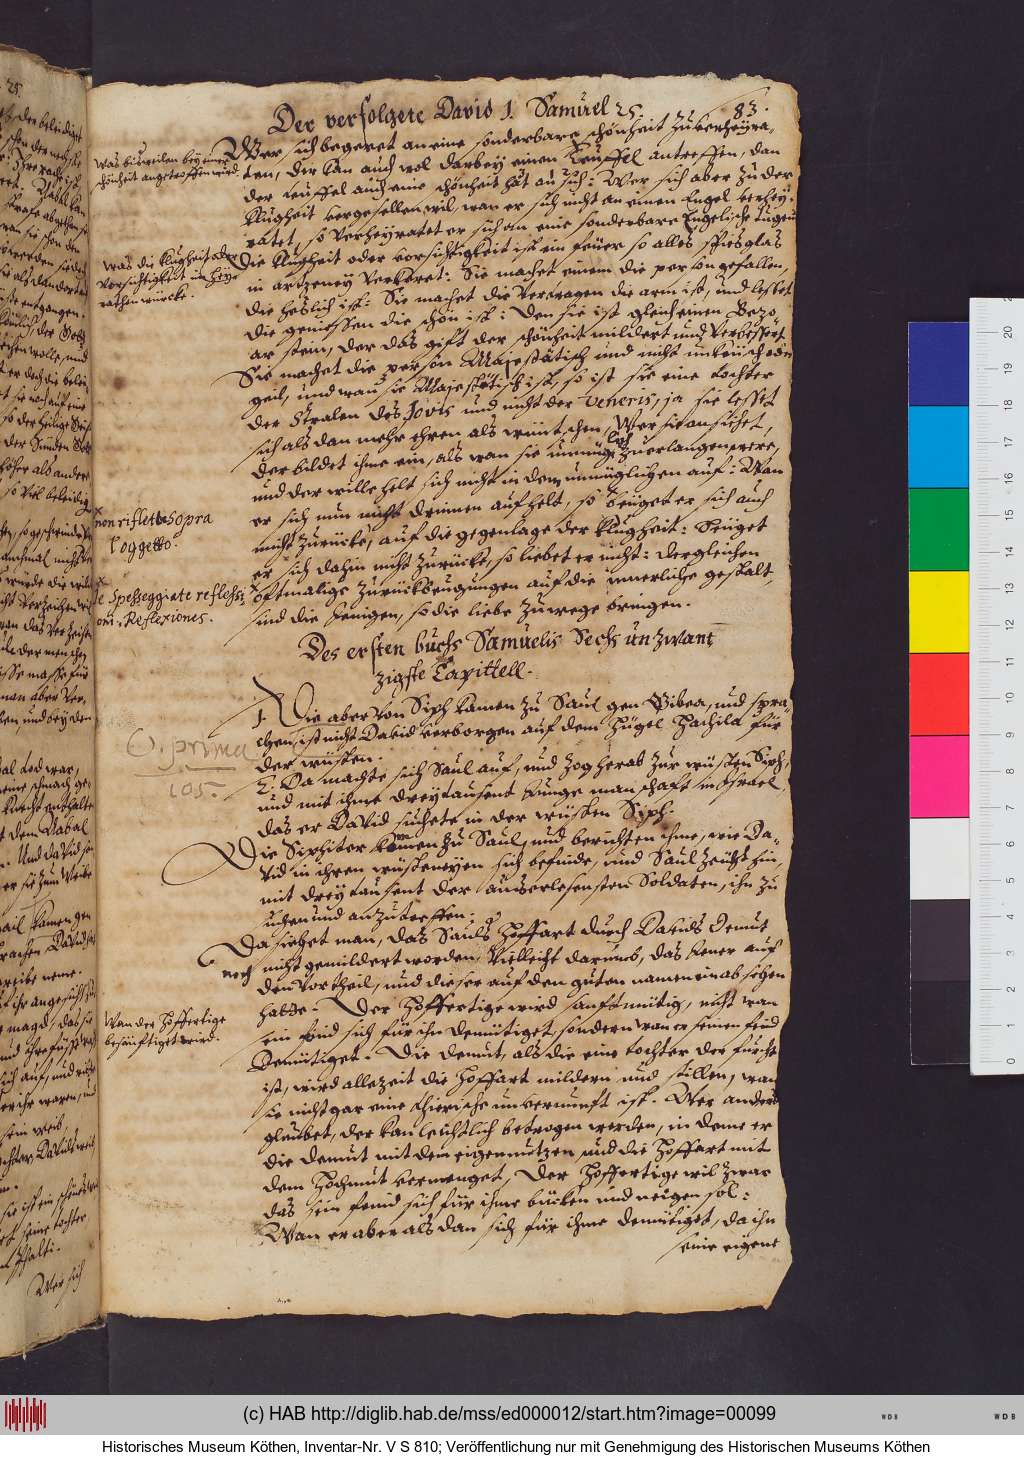 Der verfolgete David 1. Samuel 25. 83.
Wer sich begeret an eine sonderbare schönheit zuverheyra-
ten, der kan auch wol darbey einen Teuffel antreffen, dan
der teuffel auch eine schönheit hat an sich: Wer sich aber zu der
klugheit vergesellen wil, wan er sich nicht an einen Engel verhey-
ratet, so verheyratet er sich an eine sonderbare Englische tugend
Die klugheit oder vorsichtigkeit ist ein feuer so alles spiesglas
in artzeney verkeret: Sie machet einem die person gefallen,
die heslich ist: Sie machet die vertragen die arm ist, und lesset
die geniessen die schön ist: Den sie ist gleich einem Bezo-
ar stein, der das gift der schönheit mildert und verbessert
Sie machet die person Majestätisch und nicht unkeusch oder
geil, und wan sie Majestätisch ist, so ist sie eine tochter
der Stralen des Jovis und nicht der Veneris, ja sie lesset
sich als dan mehr ehren als wüntschen, Wer sie ansichet,
der bildet ihme ein, als wan sie unmüglich zuerlangen were,
und der wille helt sich nicht in dem unmüglichen auf: Wan
er sich nun nicht drinnen aufhelt, so beuget er sich auch
nicht zurücke, auf die gegenlage der klugheit: Beuget
er sich dahin nicht zurücke, so liebet er nicht: dergleichen
oftmalige zurückbeugungen auf die innerliche gestalt,
sind die jenigen, so die liebe zuwege bringen.
Des ersten buchs Samuelis Sechs un zwant
zigste Capittell.
1. Die aber von Siph kamen zu Saul gen Gibea, und spra-
chen, ist nicht David verborgen auf dem hügel Hachila für
der wüsten.
2. Da machte sich Saul auf, und zog herab zur wüsten Siph,
und mit ihme dreytausent junge manschaft in Israel,
das er David suchete in der wüsten Siph.
Die Siphiter kamen zu Saul, und berichten ihme, wie Da-
vid in ihren wüsteneyen sich befinde, und Saul zeücht hin,
mit dreytausent der auserlesensten Soldaten, ihn zu
suchen und anzutreffen.
Da siehet man, das Sauls hoffart durch Davids demut
noch nicht gemildert worden, Vielleicht darumb, das jener auf
den vortheil, und dieser auf den guten namen ein absehen
hatte. Der hoffertige wird sanftmütig, nicht wan
ein feind sich für ihn demütiget, sondern wan er seinen feind
demütiget. Die demut, als die eine tochter der furcht
ist, wird allezeit die hoffart mildern und stillen, wan
es nicht gar eine thierische unvernunft ist. Wer anders
glaubet, der kan leichtlich betrogen werden, in deme er
die demut mit dem eigennutzen und die hoffart mit
dem hochmut vermenget, Der hoffertige wil zwar
das sein feind sich für ihme bücken und neigen sol:
Wan er aber als dan sich für ihme demütiget, da ihn
seine eigene
was bisweilen bey einer
schönheit angetroffen wird
was die klugheit oder
vorsichtigkeit im hey-
rathen würcke.
non riflette sopra
l'oggetto.
le spesseggiate reflessi-
oni. Reflexiones.
O. prima
105.
Wan der hoffertige
besänftiget wird.
(c) HAB http://diglib.hab.de/mss/ed000012/start.htm?image=00099
WDB
WDB
Historisches Museum Köthen, Inventar-Nr. V S 810; Veröffentlichung nur mit Genehmigung des Historischen Museums Köthen